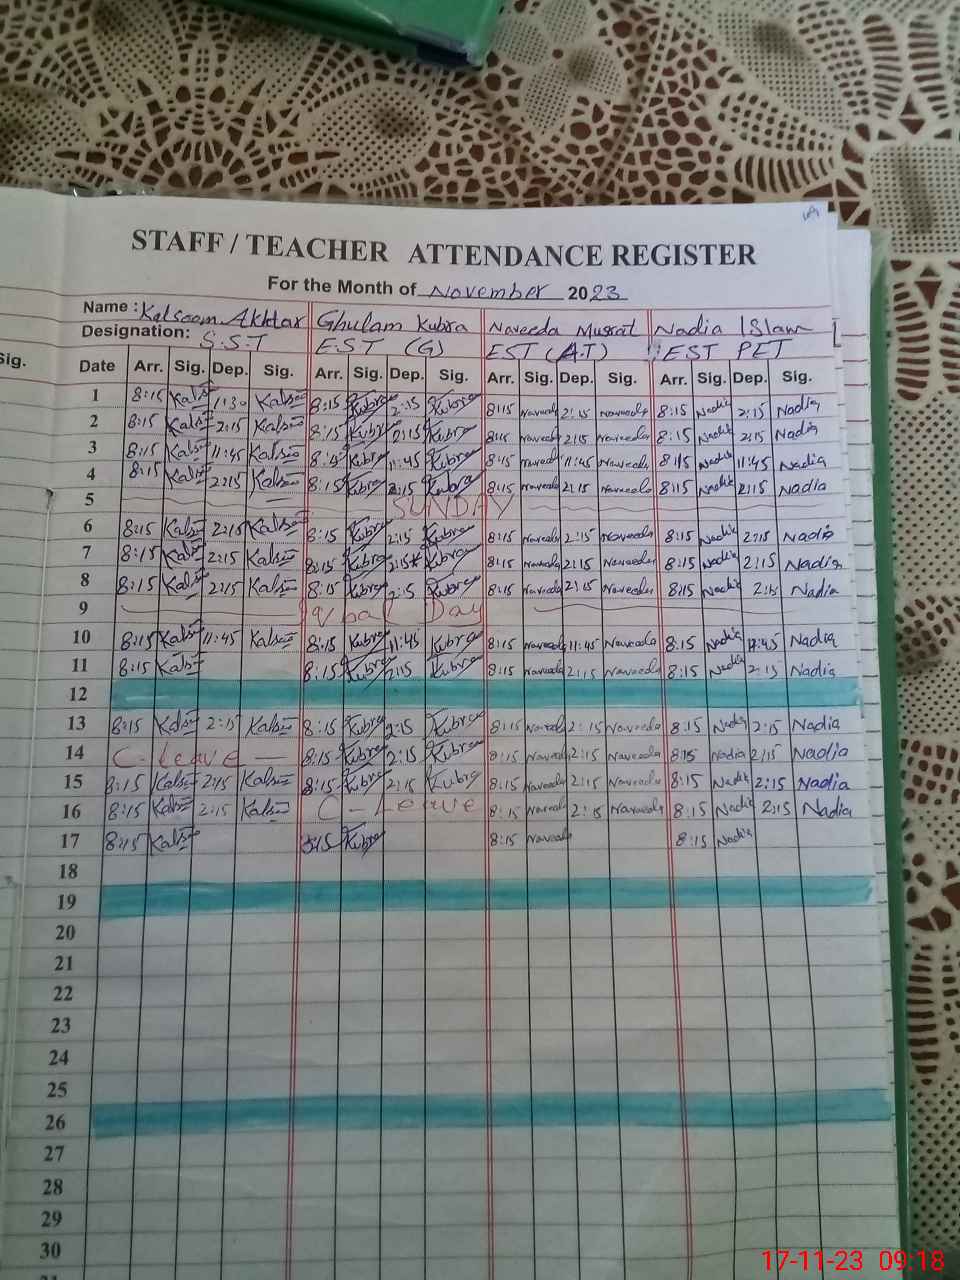 STAFF / TEACHER ATTENDANCE REGISTER
For the Month of November 2023
Name : Kalsoom Akhtar Ghulam Kubra Naveeda Musrat Nadia Islam
Designation: S.S.T EST (G) EST (A.T) EST PET
Sig.
Date Arr. Sig. Dep. Sig. Arr. Sig. Dep. Sig. Arr. Sig. Dep. Sig. Arr. Sig. Dep. Sig.
1 8:15 11:30 8:15 Kubra 2:15 Kubra 8:15 Naveeda 2:15 Naveeda 8:15 Nadia 2:15 Nadia
2 8:15 2:15 8:15 Kubra 2:15 Kubra 8:15 Naveeda 2:15 Naveeda 8:15 Nadia 2:15 Nadia
3 8:15 11:45 8:15 Kubra 11:45 Kubra 8:15 Naveeda 11:45 Naveeda 8:15 Nadia 11:45 Nadia
4 8:15 2:15 8:15 Kubra 2:15 Kubra 8:15 Naveeda 2:15 Naveeda 8:15 Nadia 2:15 Nadia
5 SUNDAY
6 8:15 2:15 8:15 Kubra 2:15 Kubra 8:15 Naveeda 2:15 Naveeda 8:15 Nadia 2:15 Nadia
7 8:15 2:15 8:15 Kubra 2:15 Kubra 8:15 Naveeda 2:15 Naveeda 8:15 Nadia 2:15 Nadia
8 8:15 2:15 8:15 Kubra 2:15 Kubra 8:15 Naveeda 2:15 Naveeda 8:15 Nadia 2:15 Nadia
9 Iqbal Day
10 8:15 11:45 8:15 Kubra 11:45 Kubra 8:15 Naveeda 11:45 Naveeda 8:15 Nadia 11:45 Nadia
11 8:15 8:15 Kubra 2:15 Kubra 8:15 Naveeda 2:15 Naveeda 8:15 Nadia 2:15 Nadia
12
13 8:15 2:15 8:15 Kubra 2:15 Kubra 8:15 Naveeda 2:15 Naveeda 8:15 Nadia 2:15 Nadia
14 C-leave 8:15 Kubra 2:15 Kubra 8:15 Naveeda 2:15 Naveeda 8:15 Nadia 2:15 Nadia
15 8:15 2:15 8:15 Kubra 2:15 Kubra 8:15 Naveeda 2:15 Naveeda 8:15 Nadia 2:15 Nadia
16 8:15 2:15 C-Leave 8:15 Naveeda 2:15 Naveeda 8:15 Nadia 2:15 Nadia
17 8:15 8:15 Kubra 8:15 Naveeda 8:15 Nadia
18
19
20
21
22
23
24
25
26
27
28
29
30
17-11-23 09:18